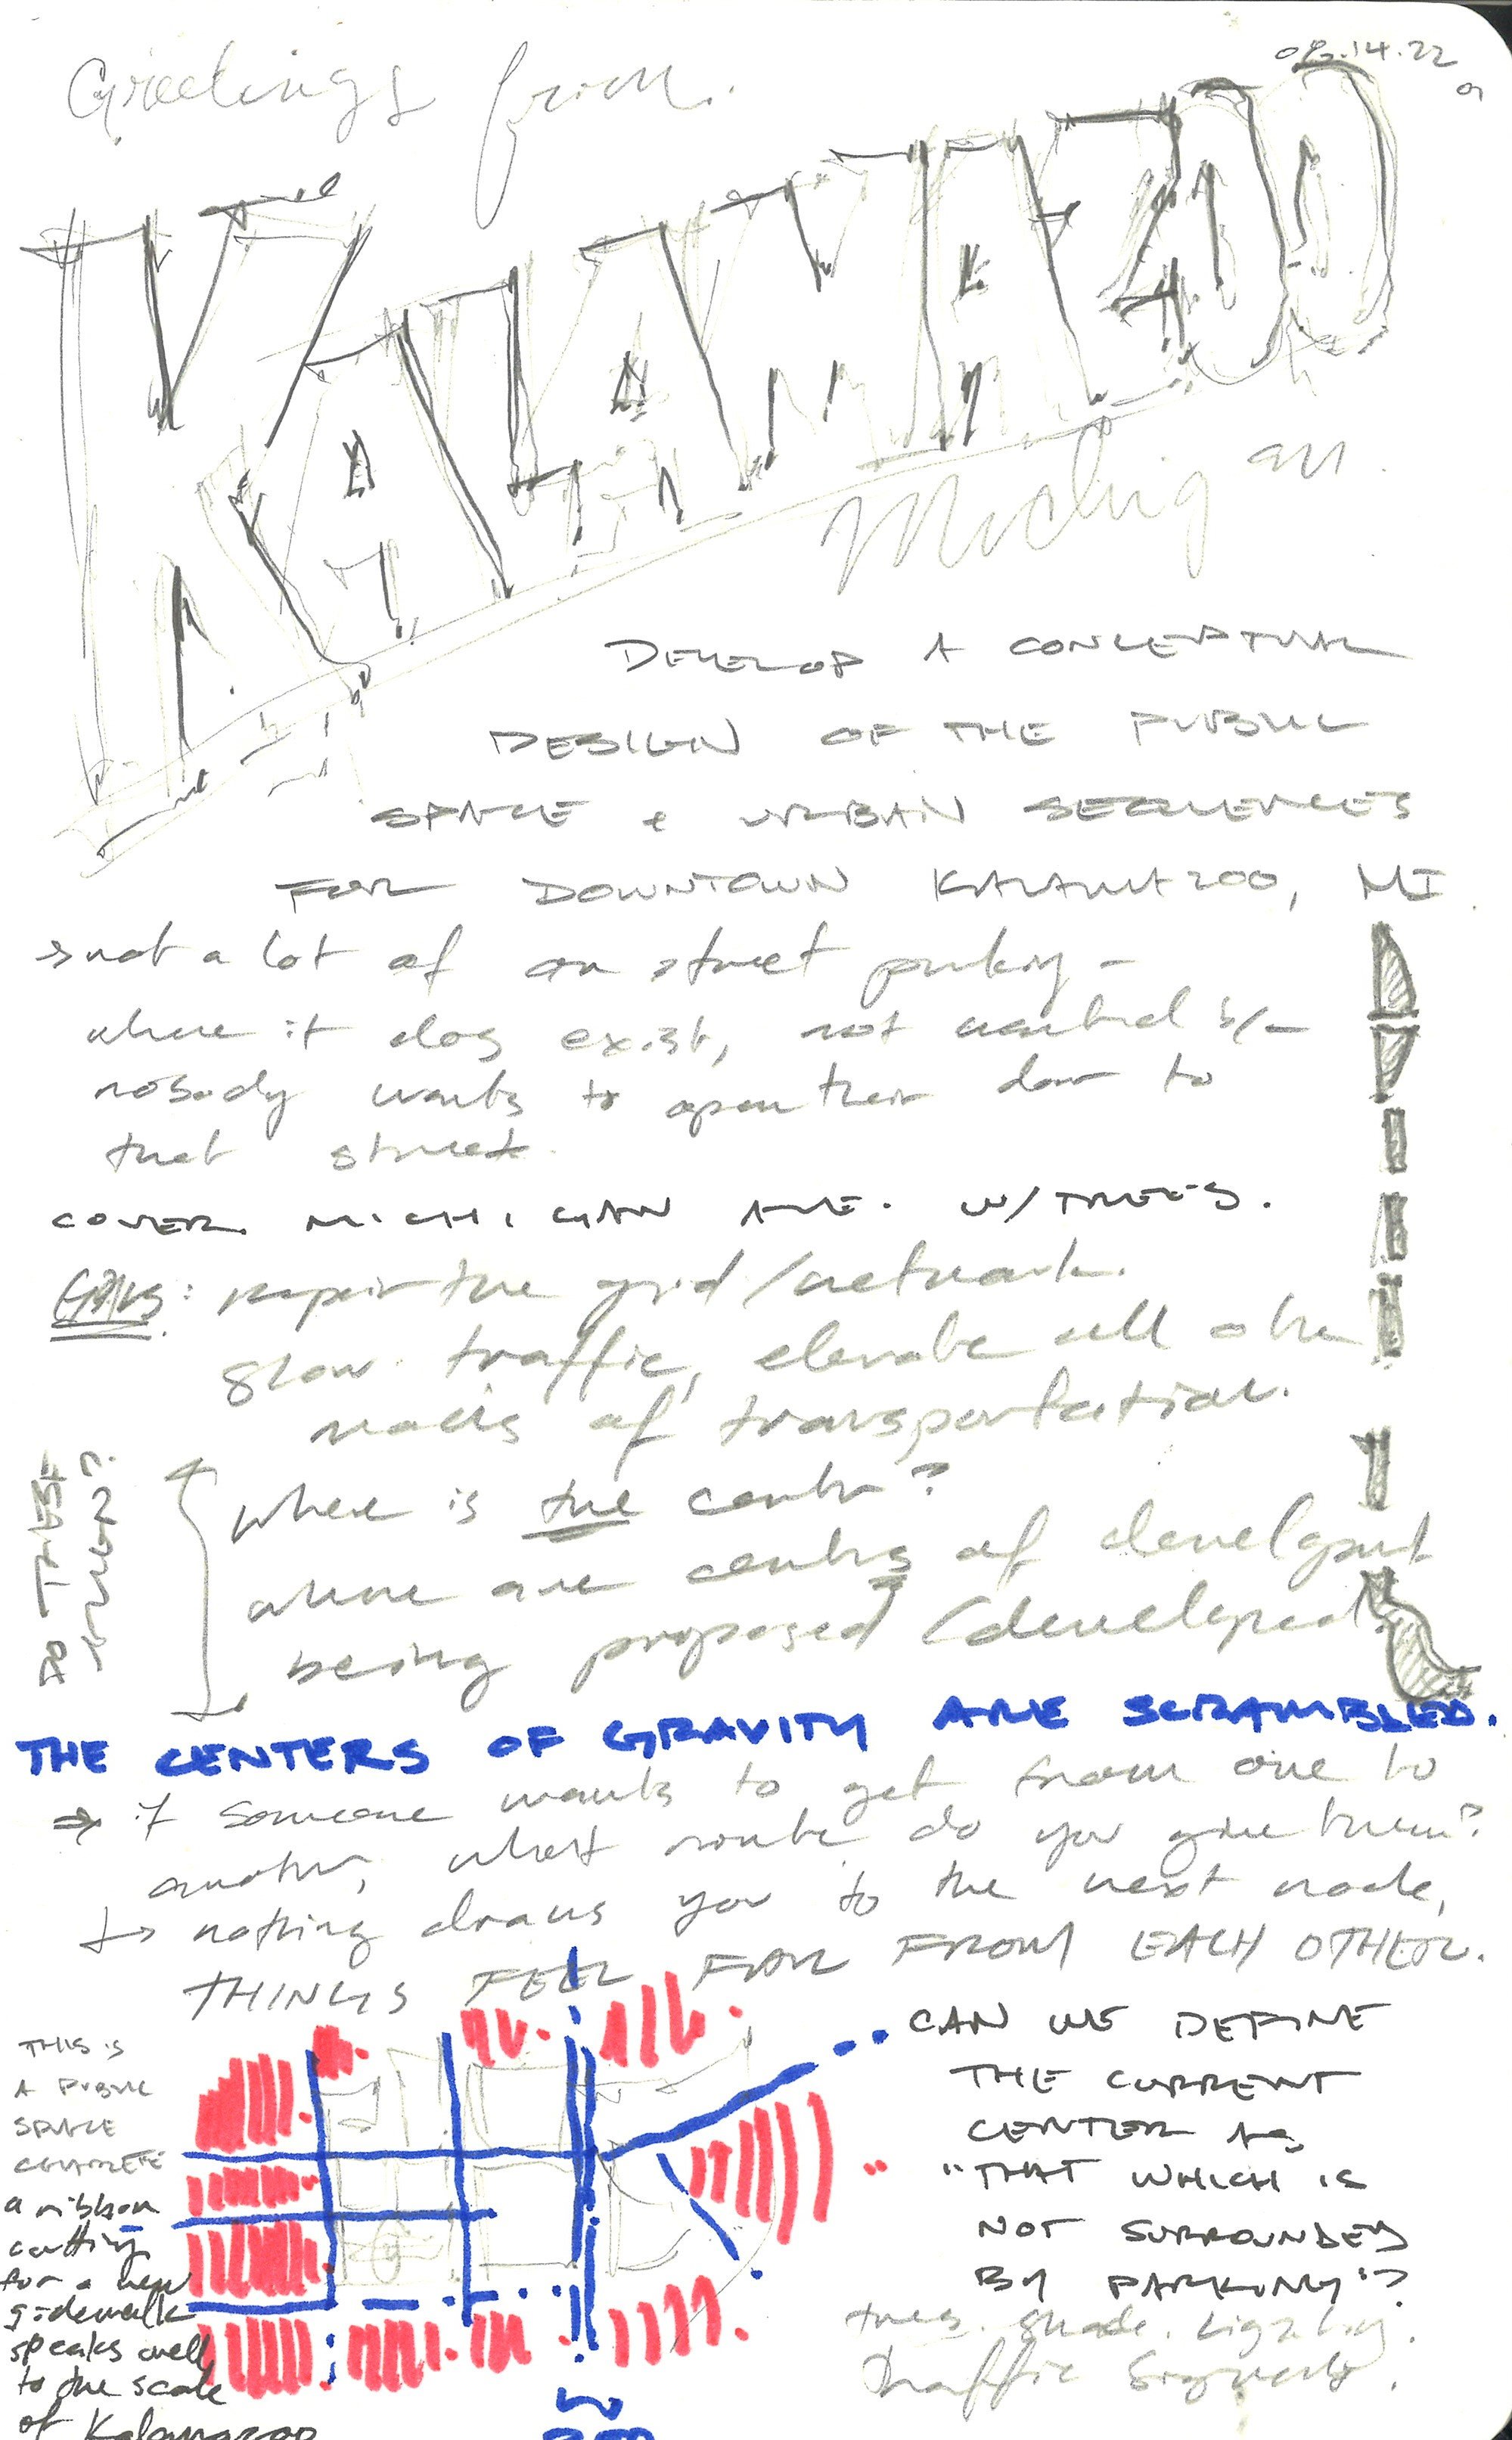 06.14.22
01
Greetings from
KALAMAZOO
Michigan
DEVELOP A CONCEPTUAL
DESIGN OF THE PUBLIC
SPACE & URBAN SEQUENCES
FOR DOWNTOWN KALAMAZOO, MI
not a lot of on street parking -
where it does exist, not wanted b/c
nobody wants to open their door to
that street.
COVER MICHIGAN AVE. W/ TREES.
GOALS: repair the grid/network.
slow traffic, elevate all other
modes of transportation.
DO THESE
where is the center?
where are centers of development
being proposed/developed
THE CENTERS OF GRAVITY ARE SCRAMBLED.
⇒ if someone wants to get from one to
another, what route do you give them?
↳ nothing draws you to the next node,
THINGS FEEL FAR FROM EACH OTHER.
CAN WE DEFINE
THE CURRENT
CENTER AS
"THAT WHICH IS
NOT SURROUNDED
BY PARKING"?
trees. shade. lighting.
traffic signals.
THIS IS
A PUBLIC
SPACE
CONCRETE
a ribbon
cutting
for a new
sidewalk
speaks well
to the scale
of Kalamazoo